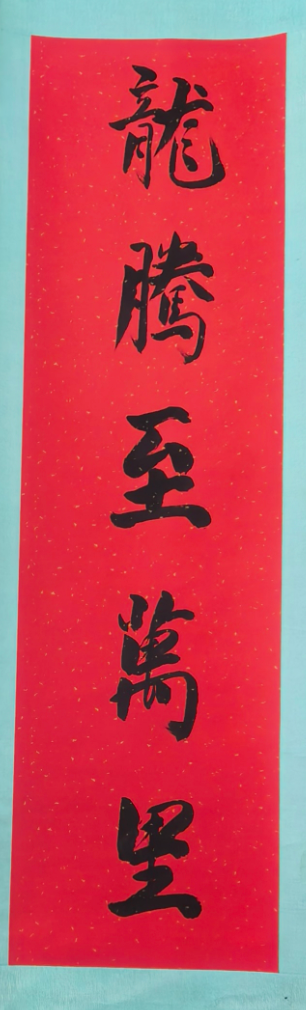 龍騰至萬里